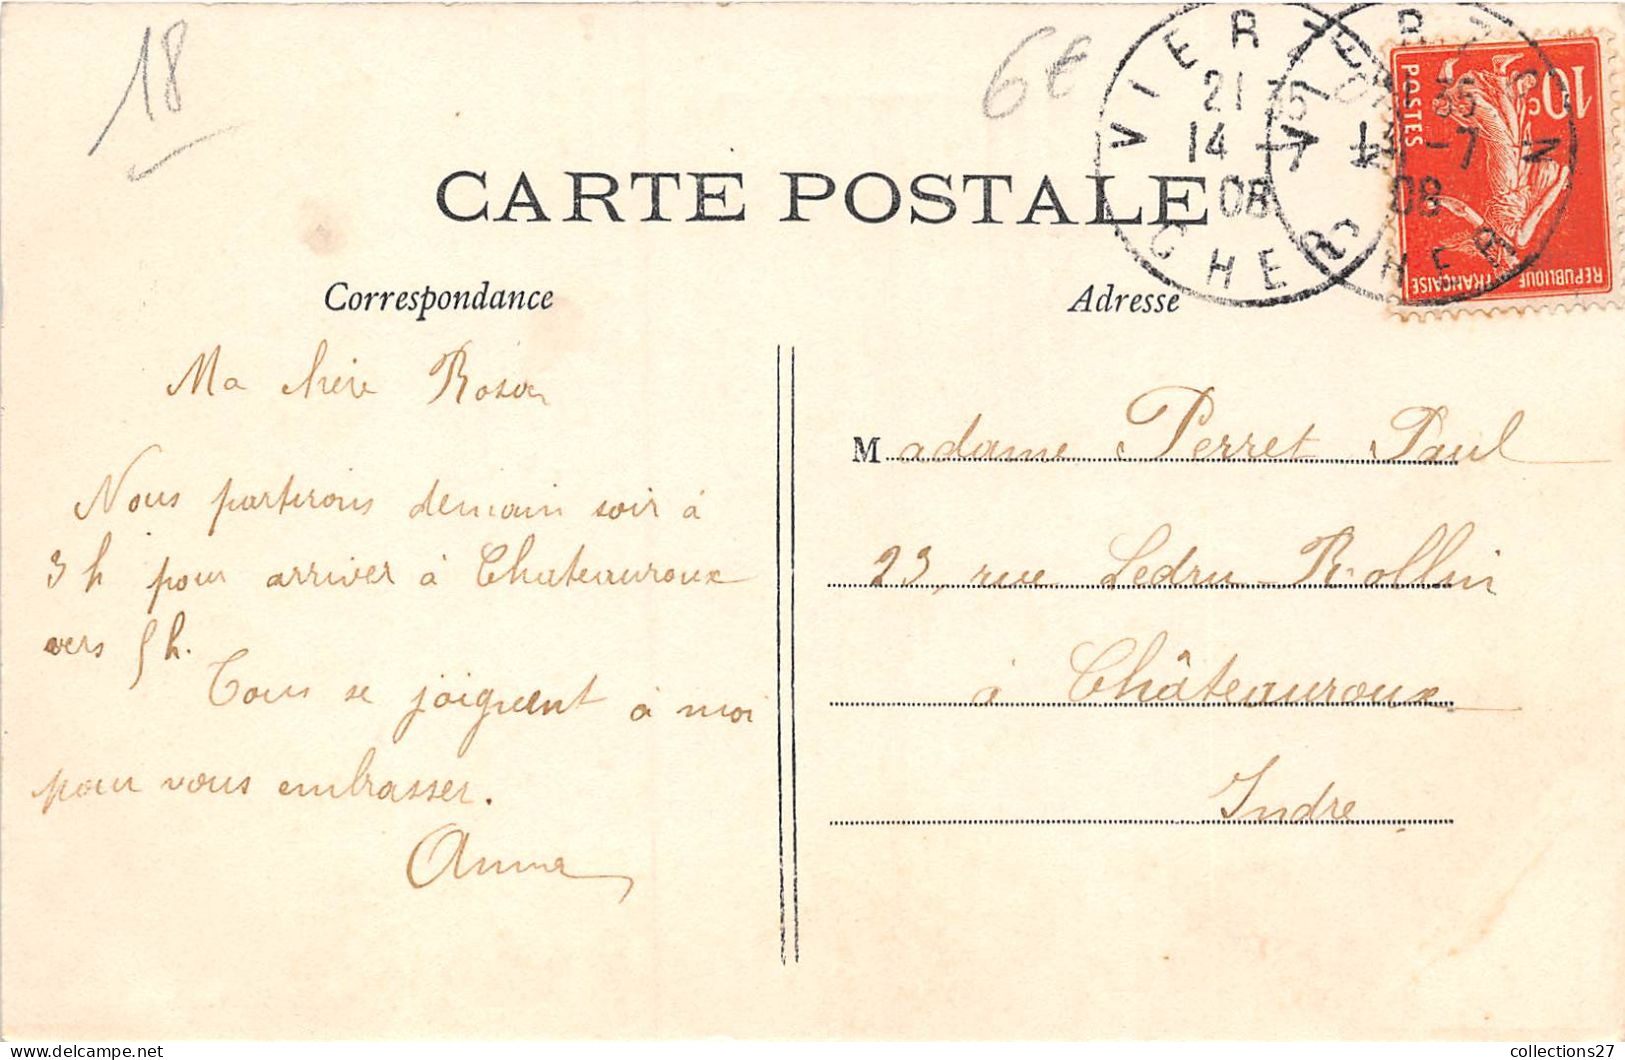 18
6€
CARTE POSTALE
VIERZON
21 35
14 -7
08
CHER
VIERZON
21 35
14 -7
08
CHER
10c
POSTES
REPUBLIQUE FRANÇAISE
Correspondance
Ma chère Rosa
Nous partirons demain soir à
3 h pour arriver à Chateauroux
vers 5 h.
Tous se joignent à moi
pour vous embrasser.
Anna
Adresse
Madame Perret Paul
23, rue Ledru-Rollin
à Châteauroux
Indre
collections27